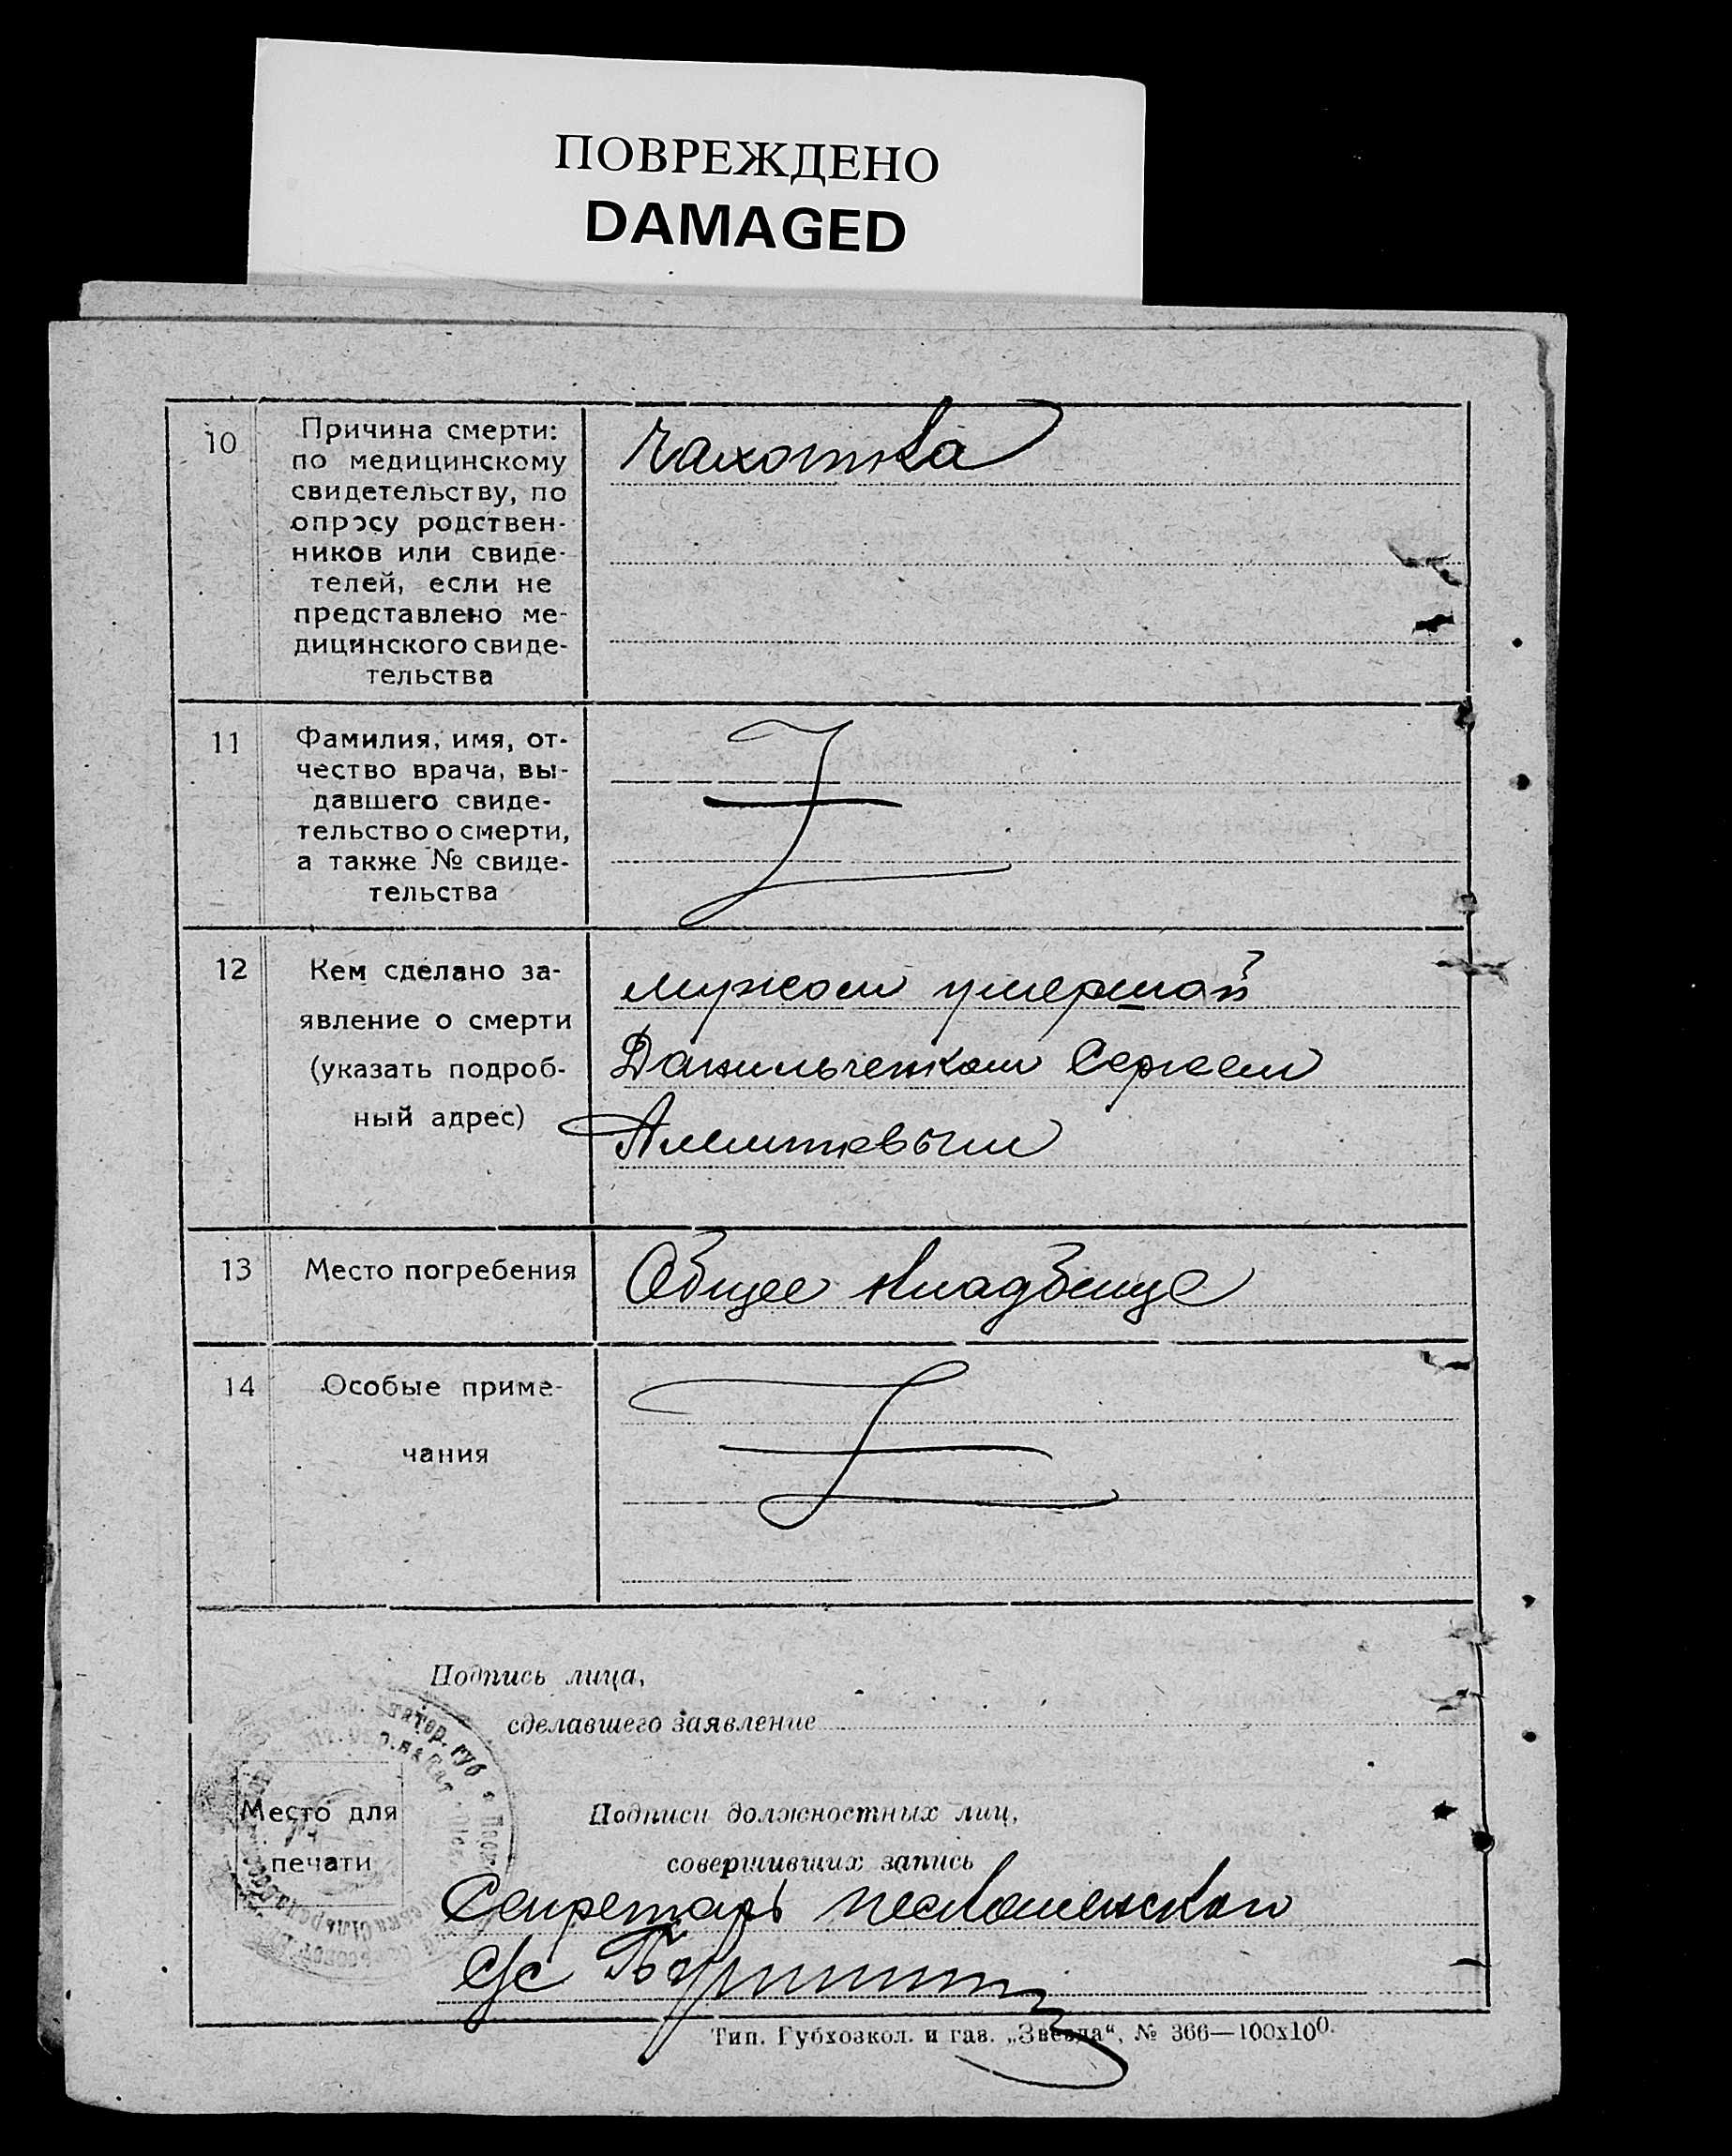 ПОВРЕЖДЕНО
DAMAGED
10
Причина смерти:
по медицинскому
свидетельству, по
опросу родствен-
ников или свиде-
телей, если не
представлено ме-
дицинского свиде-
тельства
чахотка
11
Фамилия, имя, от-
чество врача, вы-
давшего свиде-
тельство о смерти,
а также № свиде-
тельства
12
Кем сделано за-
явление о смерти
(указать подроб-
ный адрес)
мужем умершой
Данильченком Сергеем
13
Место погребения
Общее кладбище
14
Особые приме-
чания
Подпись лица,
сделавшего заявление
Место для
печати
Подписи должностных лиц,
совершивших запись
Секретарь
с/с
Тип. Губхозкол. и газ. „Звезда“, № 366—100х100.